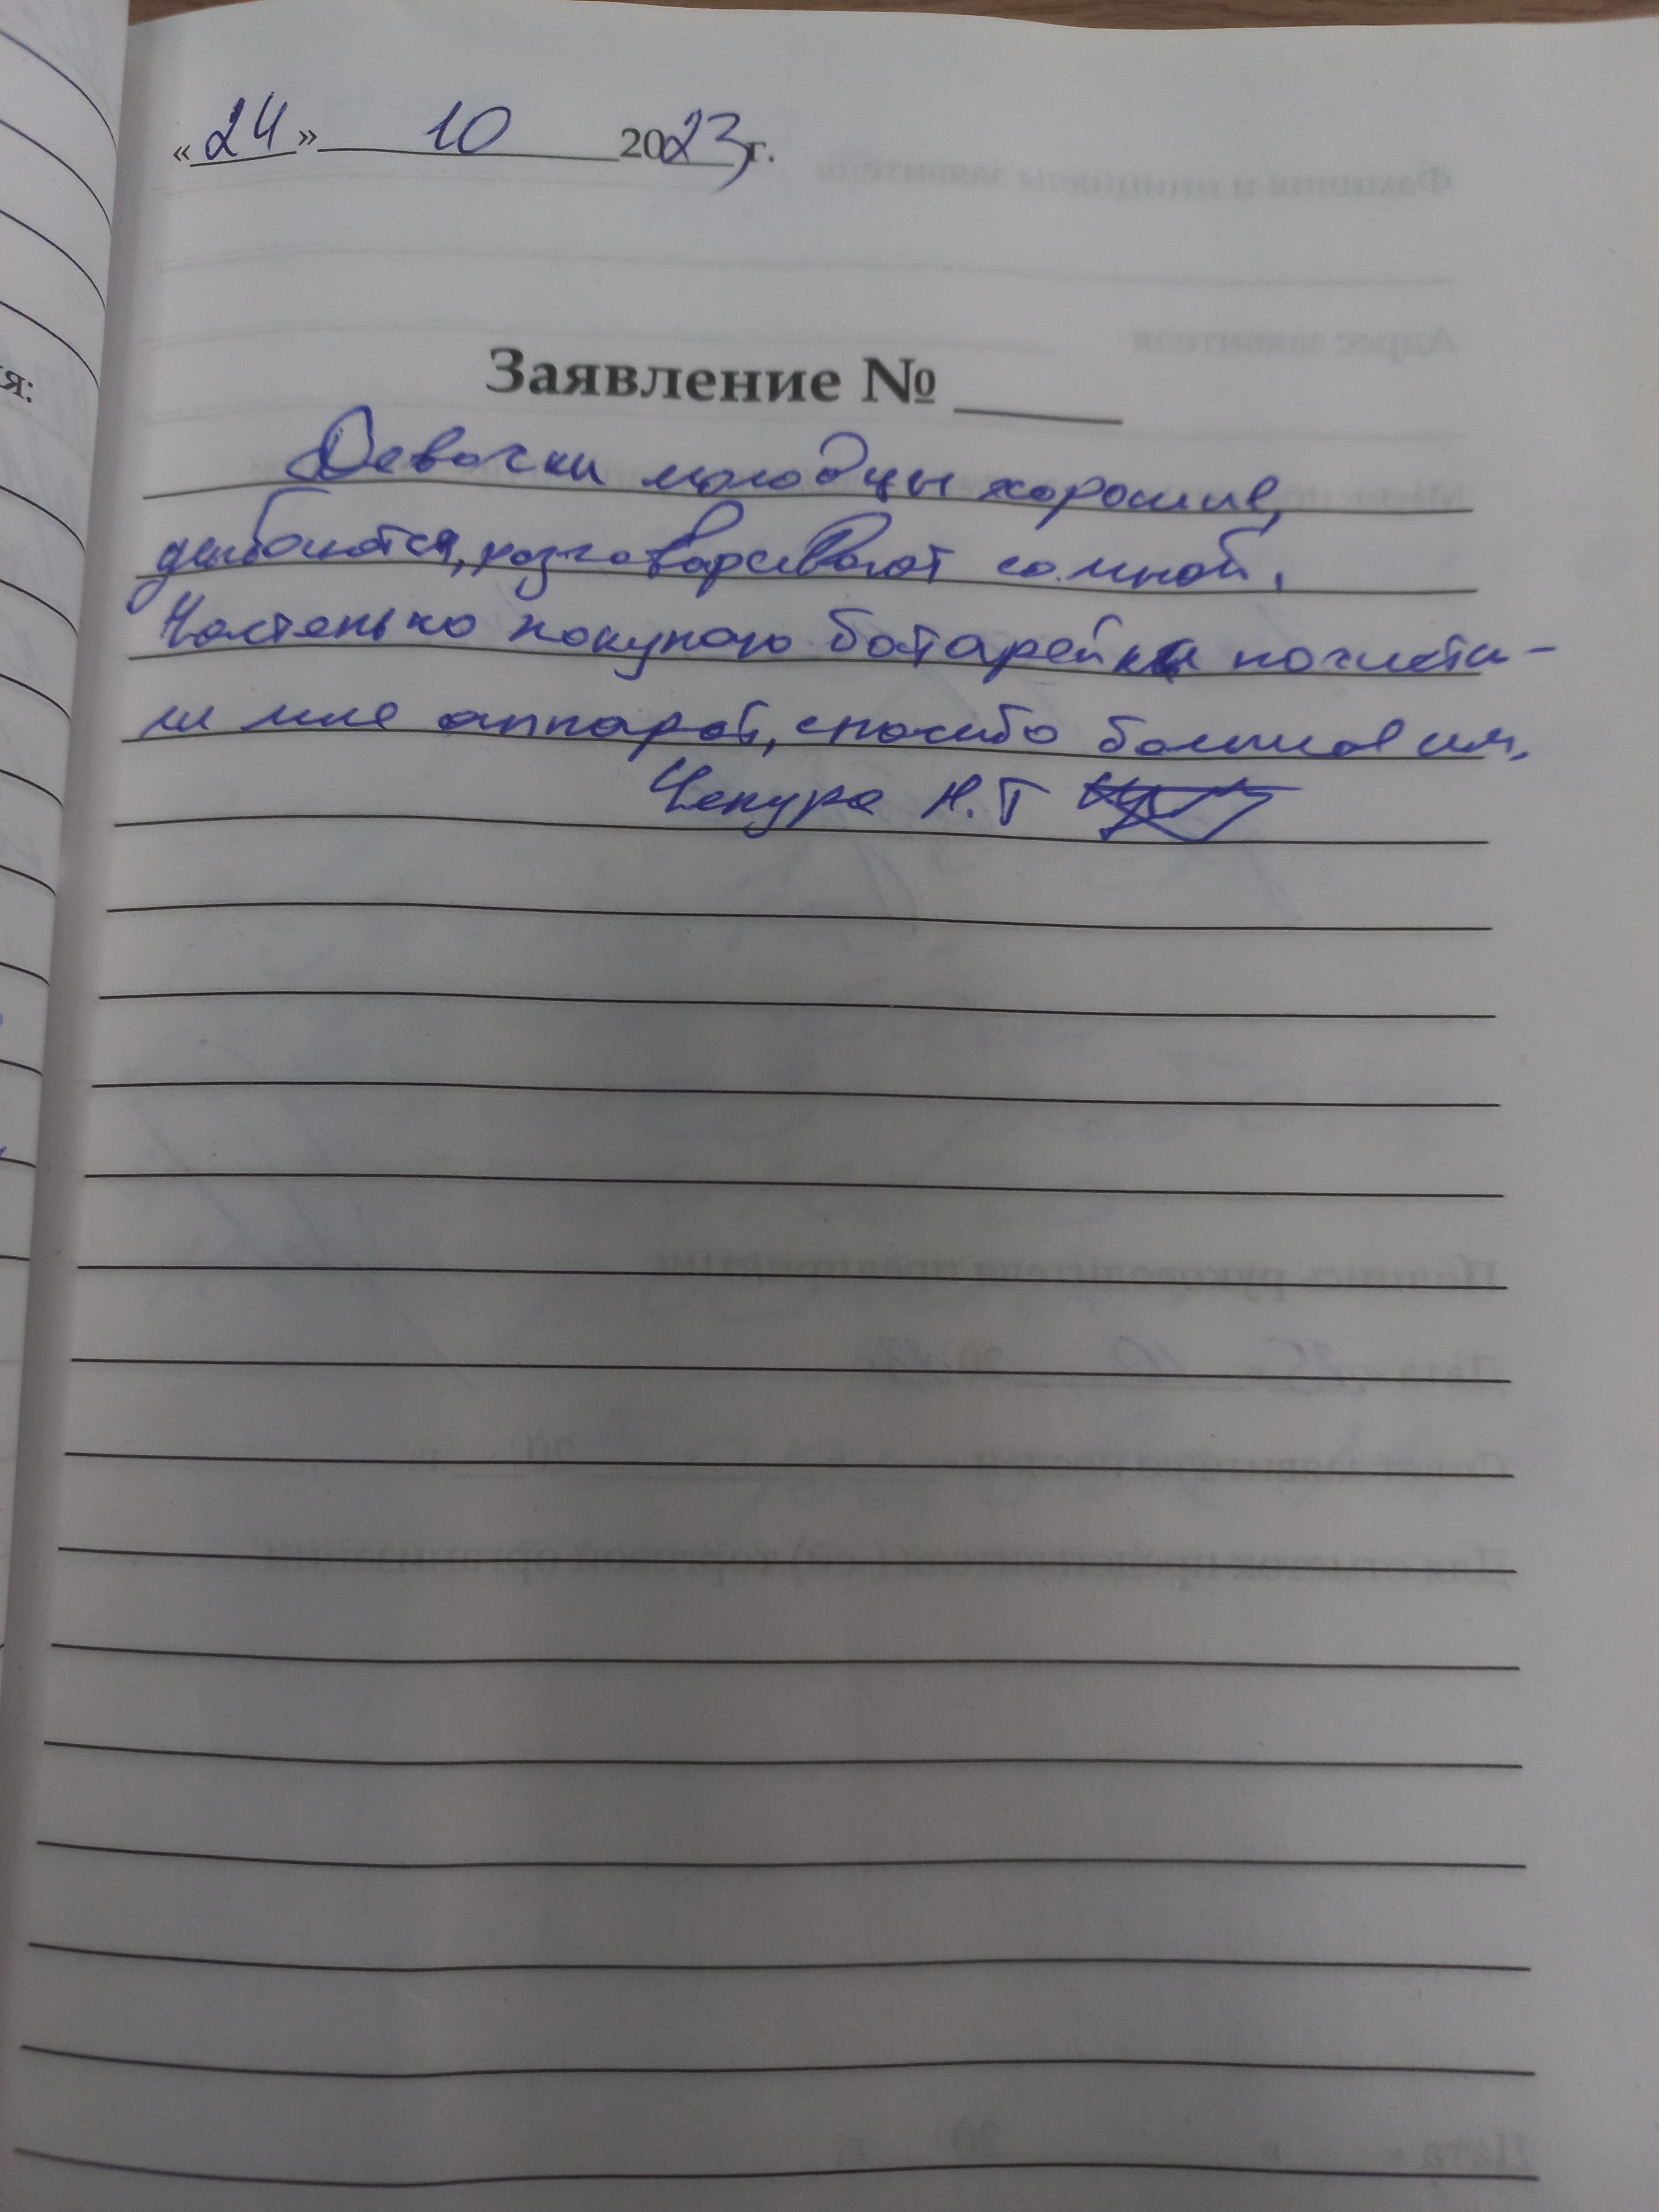 «24» 10 2023 г.
Заявление № ____
Девочки молодцы хорошие,
улыбаются, разговаривают со мной.
Частенько покупаю батарейки почисти-
ли мне аппарат, спасибо большое им.
Чепура Н.Т
я: